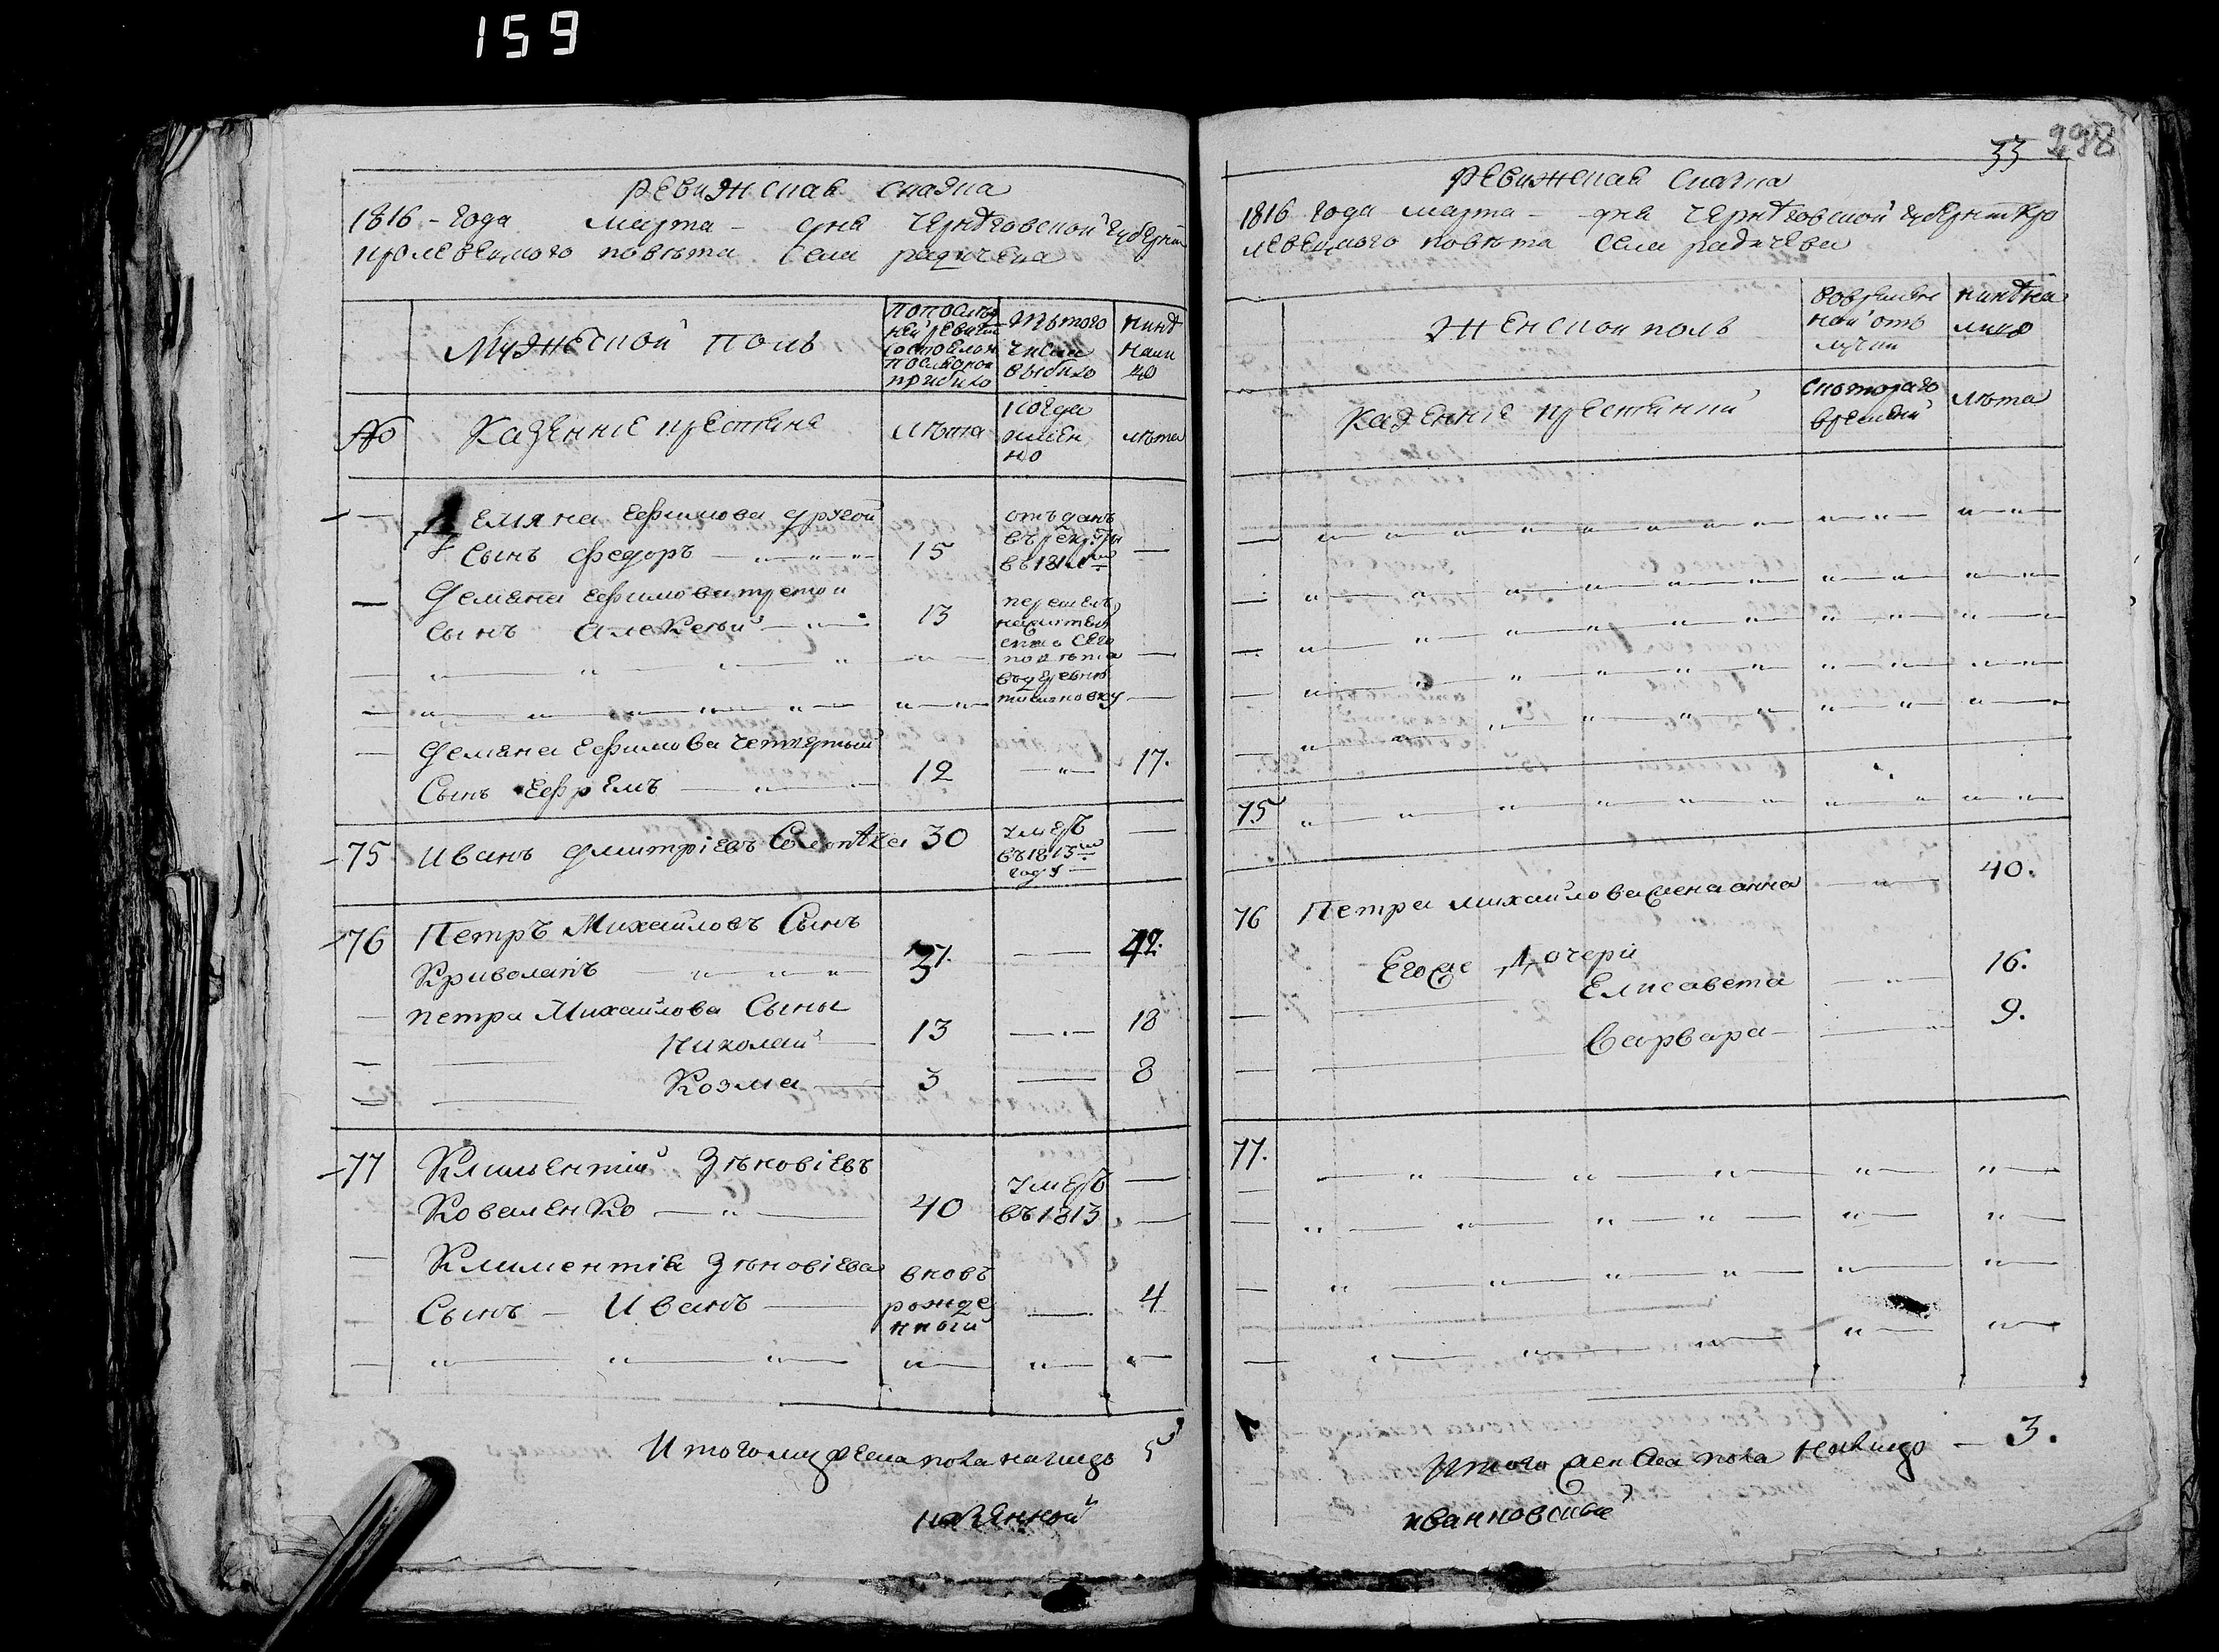 159
ревизжская сказка
1816 - года марта - дня черниговской губернии
кролевецкого повѣта села радичева
Мужеской полъ
По последней ревизии состояло и после оной прибыло
Изъ того числа выбыло
нынѣ налицо
№
Казенние крестяне
лѣта
когда именно
лѣта
Демяна Ефимова другой
Сынъ федоръ 15
отъданъ въ рекруты
Демяна Ефимова третой
сынъ алексѣй 13
перешелъ на жител
ство сего повѣта въ деревню
Демяна Ефимова четвертый
Сынъ Ефремъ 12 17.
75 Иванъ дмитріевъ 30
умеръ въ 1813м году
76 Петръ Михайловъ Сынъ
Криволапъ 37. 42.
петра Михайлова Сыны
Николай 13 18
Козма 3 8
77 Климентій Зѣновіевъ
Коваленко 40
умеръ въ 1813
Климентія Зѣновіева
Сынъ - Иванъ
вновъ рожденный
4
Итого мужеска пола налицо 5
казенной
33 298
ревижская сказка
1816 года марта - дня черниговской губернии кро
левецкого повѣта села радичева
женской полъ
во временной отлучки
нинѣ налицо
казенние крестянки
с котораго времени
лѣта
75
76 Петра михайлова жена анна 40.
Егоже Дочери
Елисавета 16.
Варвара 9.
77.
Итого женска пола налицо - 3.